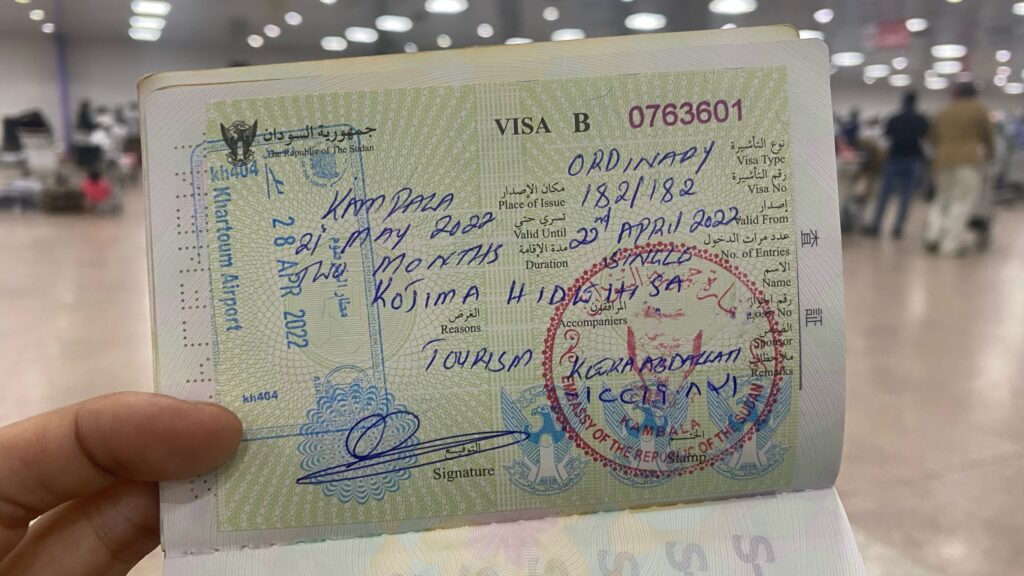 جمهورية السودان
The Republic of The Sudan
VISA B 0763601
نوع التأشيرة
ORDINARY Visa Type
رقم التأشيرة
182/182 Visa No
مكان الإصدار
KAMPALA Place of Issue
إصدار
22nd APRIL 2022 Valid From
تسري حتى
21st MAY 2022 Valid Until
عدد مرات الدخول
SINGLE No. of Entries
مدة الإقامة
MONTHS Duration
الاسم
KOJIMA HIDEHISA Name
المرافقون
Accompaniers
الغرض
TOURISM Reasons
Sponsor
Remarks
التوقيع
Signature
الختم
Stamp
kh404
Khartoum Airport
28 APR 2022
kh404
EMBASSY OF THE REPUBLIC OF THE SUDAN
KAMBALA
査証